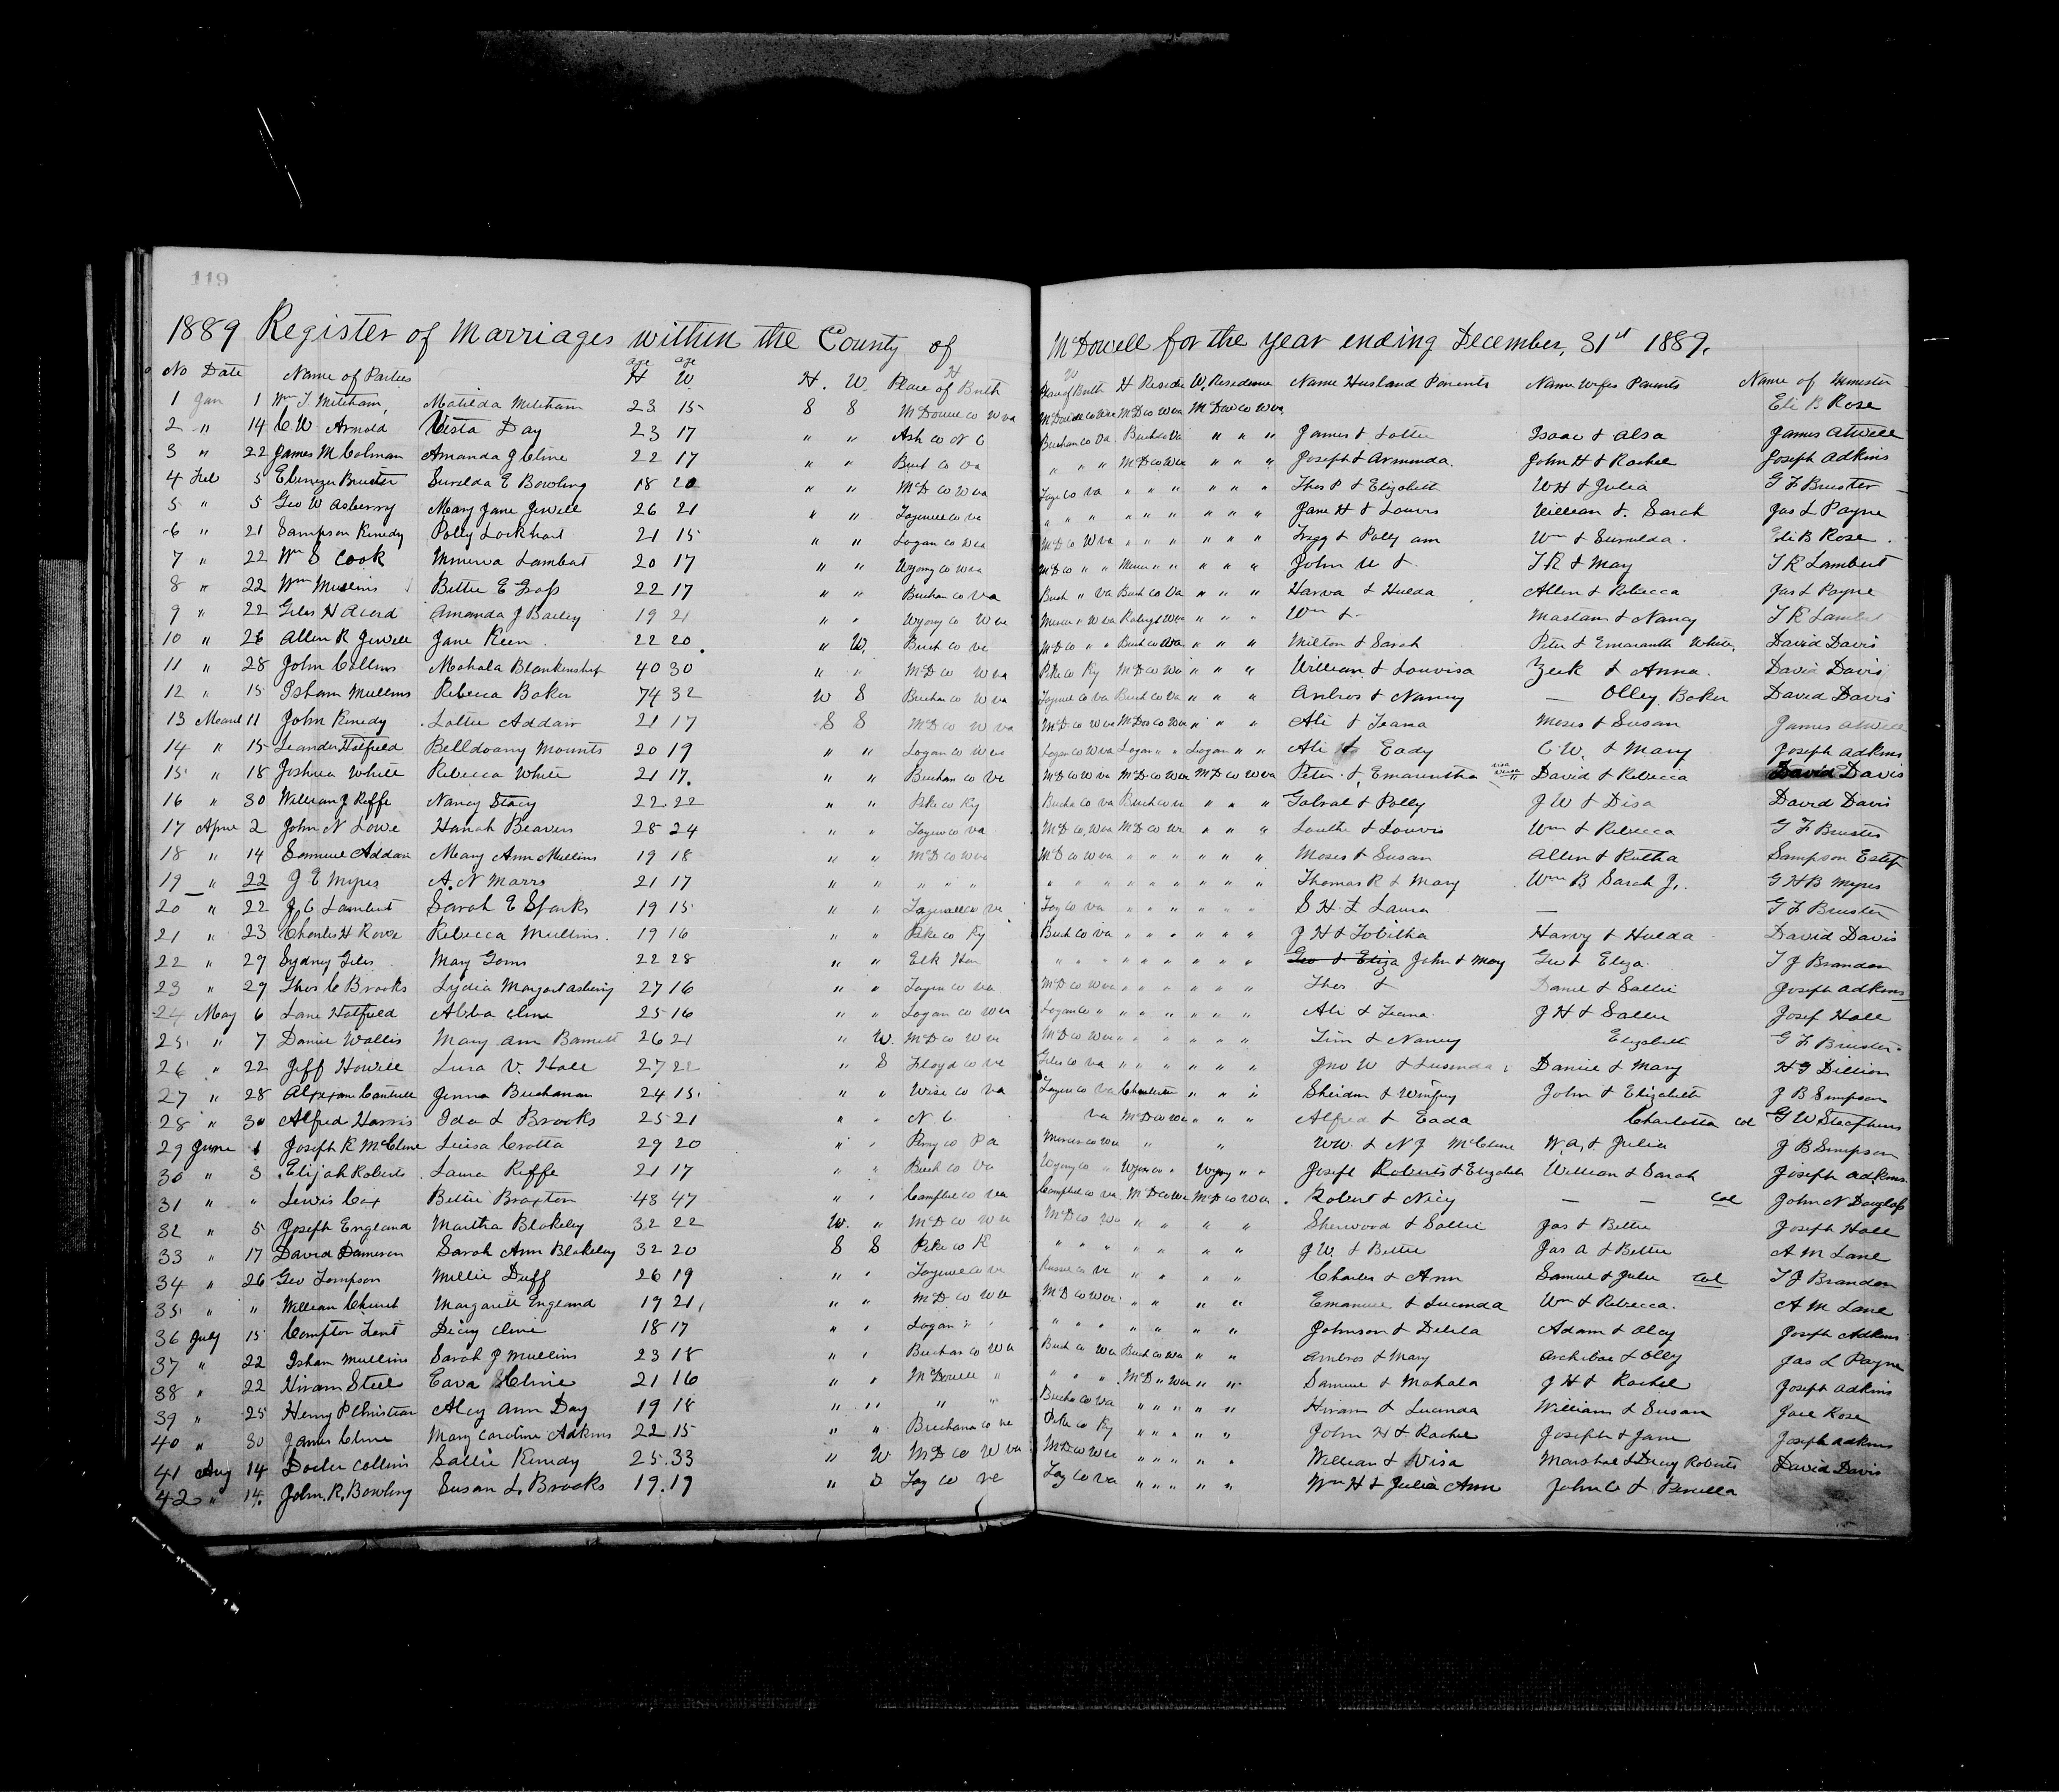 119
1889 Register of Marriages within the County of McDowell for the year ending December, 31st 1889.
No Date Name of Parties age H age W H. W. Place of Birth H Place of Birth W H Reside W. Residence Name Husband Parents Name Wifes Parents Name of Minister
1 Jan 1 Wm T Mitcham, Matilda Mitcham 23 15 S S McDowell co W va McDowell co Wva McD co W va McDow co W va Eli B Rose
2 " 14 C W Arnold Vista Day 23 17 " " Ash co N C Buchan co Va Buch co Va " " " James & Lottie Isaac & Alsa James Atwell
3 " 22 James M Colman Amanda J Cline 22 17 " " Buch co va " " " McD co W va " " " Joseph & Arminda. John H & Rachel Joseph Adkins
4 Feb 5 Ebenezer Bruster Surelda E Bowling 18 20 " " McD co W va Taze co va " " " " " " Thos P & Elizabeth W H & Julia G F Bruster
5 " 5 Geo W Asberry Mary Jane Jewell 26 21 " " Tazewell co va " " " " " " " " " Jane H & Louvis William & Sarah Jas L Payne
6 " 21 Sampson Kenedy Polly Lockhart 21 15 " " Logan co W va McD co W va " " " " " " Trigg & Polly am Wm & Surrelda. Eli B Rose.
7 " 22 Wm S Cook Minerva Lambert 20 17 " " Wyomg co W va McD co " " Mercer " " " " " John W & T R & Mary T R Lambert
8 " 22 Wm Mullins Bettie E Goss 22 17 " " Buchan co Va Buch " Va Buch co Va " " " Harva & Hulda Allen & Rebecca Jas L Payne
9 " 22 Giles H Acord Amanda J Bailey 19 21 " " Wyomg co W va Mercer " W va Raleigh W va " " " Wm & Mastam & Nancy T R Lambert
10 " 26 Allen R Jewell Jane Keen 22 20 " W. Buch co va McD co " " Buch co Va " " " Milton & Sarah Peter & Emaranth White, David Davis
11 " 28 John Collins Mahala Blankenship 40 30 " " McD co W va Pike co Ky McD co W va " " " William & Louvisa Zeek & Anna. David Davis
12 " 15 Isham Mullins Rebecca Baker 74 32 W S Buchan co W va Tazewel co va Buch co Va " " " Ambros & Nancy — Olley Baker David Davis
13 March 11 John Kenedy Lottie Addair 21 17 S S McD co W va McD co W va McD co W va " " " Ali & Teana Moses & Susan James Atwell
14 " 15 Leander Hatfield Belldoany Mounts 20 19 " " Logan co W va Logan co W va Logan " " Logan " " Ali & Eady C. W. & Mary Joseph Adkins
15 " 18 Joshua White Rebecca White 21 17. " " Buchan co Va McD co W va McD co W va McD co W va Peter & Emarantha David & Rebecca David Davis
16 " 30 William J Riffe Nancy Stacy 22 22 " " Pike co Ky Bucha co va Buch co va " " " Gabral & Polly J W & Disa David Davis
17 Aprie 2 John N Lowe Hanah Beavers 28 24 " " Tazew co va McD co, W va McD co W va " " " Louthe & Louvis Wm & Rebecca G F Bruster
18 " 14 Samuel Addair Mary Ann Mullins 19 18 " " McD co W va McD co W va " " " " " " Moses & Susan Allen & Rutha Sampson Estep
19 " 22 J E Myres A. N Marrs 21 17 " " " " " " " " " " " " " " Thomas R & Mary Wm B Sarah J. G H B Myres
20 " 22 J, C Lambert Sarah E Sparks 19 15 " " Tazewell co va Taz co va " " " " " " S H & Laura — G F Bruster
21 " 23 Charles H Rowe Rebecca Mullins. 19 16 " " Pike co Ky Buch co va " " " " " " J H & Tobitha Harvy & Hulda David Davis
22 " 29 Sydney Giles Mary Goms 22 28 " " Elk Hon " " " " " " " " " Geo & Eliza John & Mary Geo & Eliza. T J Brandon
23 " 29 Thos C Brooks Lydia Margart Asbery 27 16 " " Tazew co va McD co W va " " " " " " Thos & Daniel & Sallie Joseph Adkins
24 May 6 Lane Hatfield Abba Cline 25 16 " " Logan co W va Logan co " " " " " " " Ali & Teana. J H & Sallie Josef Hall
25 " 7 Daniel Wallis Mary Ann Barnett 26 21 " W. McD co W va McD co W va " " " " " Tim & Nancy Elizabeth G F Bruster
26 " 22 Jeff Howell Lura V. Hall 27 22 " S Floyd co va Giles co va " " " " " " Jno W & Lusinda Daniel & Mary H G Dillion
27 " 28 Jenna Buchanan 24 15 " " Wise co va Tazew co va Charleston " " " Sheirdan & Winfrey John & Elizabeth J B Simpson
28 " 30 Alfred Harris Ida L Brooks 25 21 " " N C va McD co W va " " " Alfred & Eada Charlotta col G W Steaphens
29 June 1 Joseph R McClure Luisa Crotta 29 20 " " Perry co Pa Mercer co W va " " W W. & N J McClure W. A, & Julia J B Simpson
30 " 3 Elijah Roberts Laura Riffe 21 17 " " Buch co va Wyomg co " Wyom co " Wyomg " " Josefh Roberts & Elizabeth William & Sarah Joseph Adkins
31 " " Lewis Cox Bettie Braxton 43 47 " " Campbel co va Campbel co va McD co W va McD co W va Robert & Nicy — — Col John N Douglass
32 " 5 Joseph England Martha Blakeley 32 22 W. " McD co W va McD co W va " " " " Sherwood & Sallie Jas & Bettie Joseph Hall
33 " 17 David Dameron Sarah Ann Blakeley 32 20 S S Pike co K " " " " " " " J W. & Bettie Jas A & Bettie A M Lane
34 " 26 Geo Tompson Millie Duff 26 19 " " Tazewell co va Russel co va " " " " Charles & Ann Samuel & Julie Col T J Brandon
35 " " William Church Margarett England 19 21, " " McD co W va McD co W va " " " " Emanuel & Lucinda Wm & Rebecca. A M Lane
36 July 15 Compton Lent Dicey Cline 18 17 " " Logan " " " " " " " " " Johnson & Delila Adam & Alcy Joseph Adkins
37 " 22 Isham Mullins Sarah J Mullins 23 18 " " Buchan co Va Buch co Va Buch co va " " Ambros & Mary Archibal & Olly Jas L Payne
38 " 22 Hiram Steel Eava S Cline 21 16 " " McDowell " " " " McD " W va " " Samuel & Mahala J H & Rachel Joseph Adkins
39 " 25 Henry P Christian Alcy Ann Day 19 18 " " " " Bucha co va " " " " " Hiram & Lucinda William & Susan Jael Rose
40 " 30 James Cline Mary Caroline Adkins 22 15 " " Buchana co va Pike co Ky " " " " " John H & Rachel Joseph & Jane Joseph Adkins
41 Aug 14 Docter Collins Sallie Kenedy 25.33 " W McD co W va McD co W va " " " " " William & Wisa Marshal & Dicy Roberts David Davis
42 " 14. John, R, Bowling Susan L. Brooks 19.17 " S Taz co va Taz co va " " " " " Wm H & Julia Ann John C & Perilla